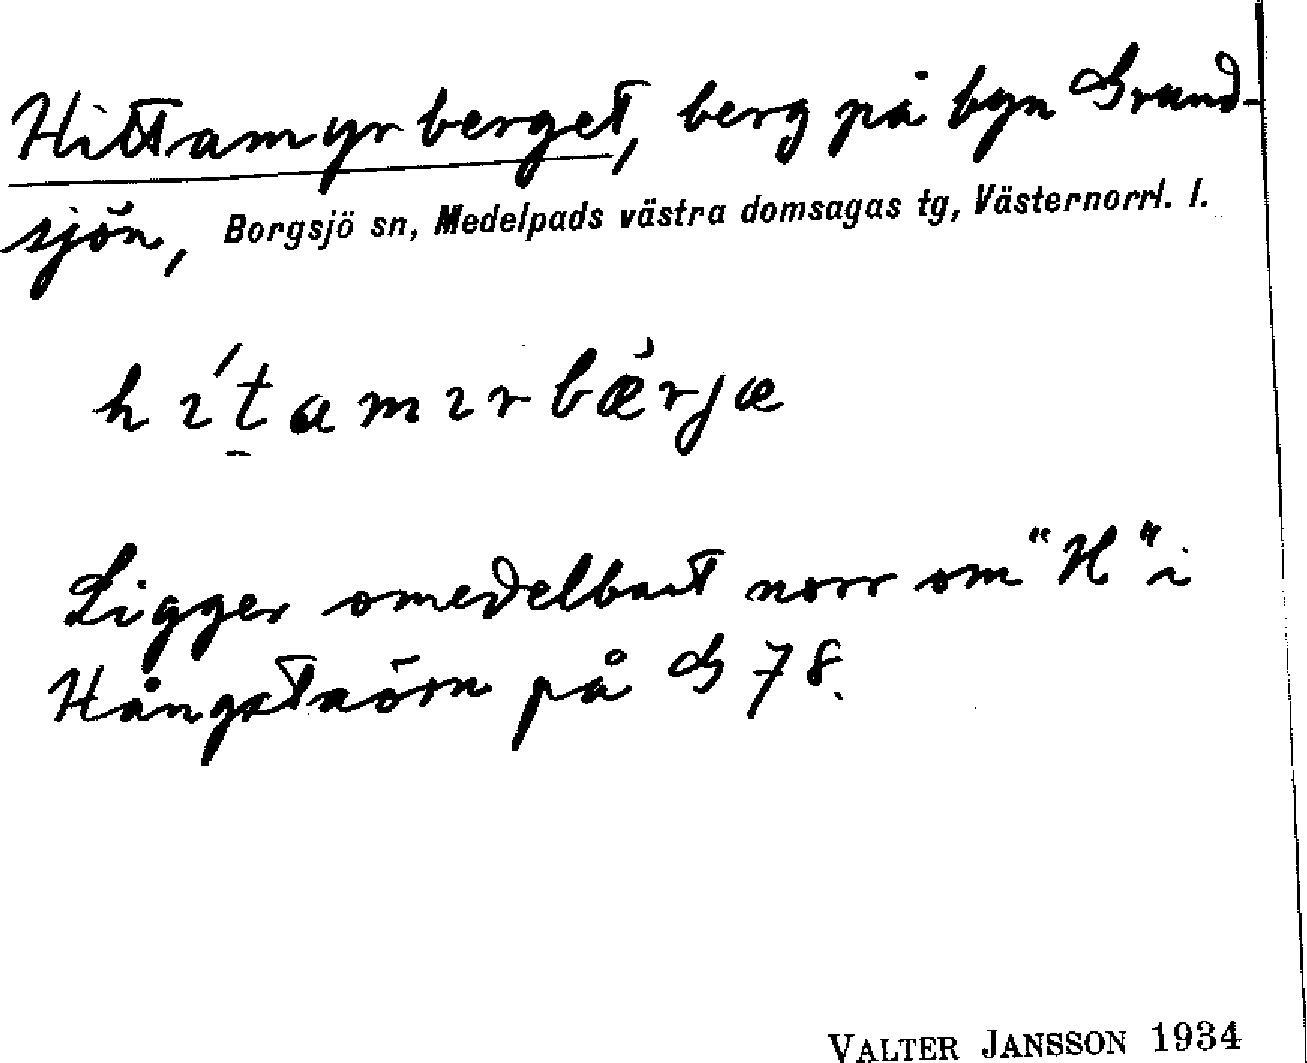 Hittamyrberget, berg på byn Grund-
sjön, Borgsjö sn, Medelpads västra domsagas tg, Västernorrl. l.
hı́t̠amırbæ̀rjæ
Ligger omedelbart norr om "H" i
Hångstaörn på G 78.
VALTER JANSSON 1934